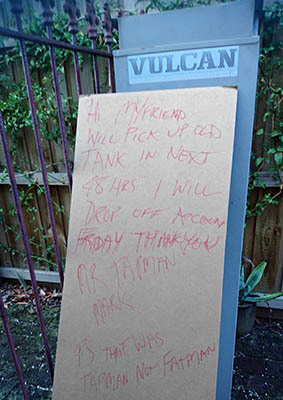 VULCAN
Hi MY FRIEND
WILL PICK UP OLD
TANK IN NEXT
48 HRS I WILL
DROP OFF ACCOUNT
FRIDAY THANK YOU
MR TAPMAN
MARK
PS THAT WAS
TAPMAN NOW FATMAN